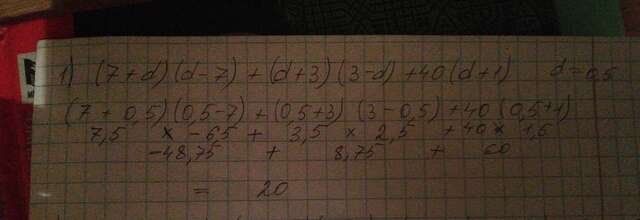 1) (7+d)(d-7)+(d+3)(3-d)+40(d+1) d=0,5
(7+0,5)(0,5-7)+(0,5+3)(3-0,5)+40(0,5+1)
7,5 × -65 + 3,5 × 2,5 +40× 1,5
-48,75 + 8,75 + 60
= 20